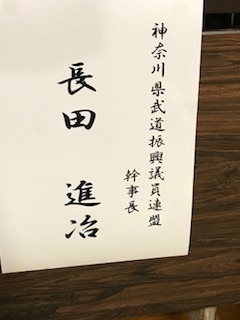 神奈川県武道振興議員連盟
幹事長
長田 進治